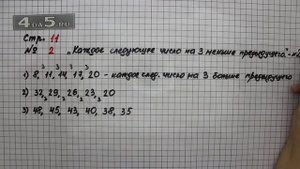 4da5.ru
Стр. 11
№ 2 „Каждое следующее число на 3 меньше предыдущего" -
3 3 3 3
1) 8, 11, 14, 17, 20 - каждое след. число на 3 больше предыдущего
2) 32, 29, 26, 23, 20
3 3 3 3
3) 48, 45, 43, 40, 38, 35